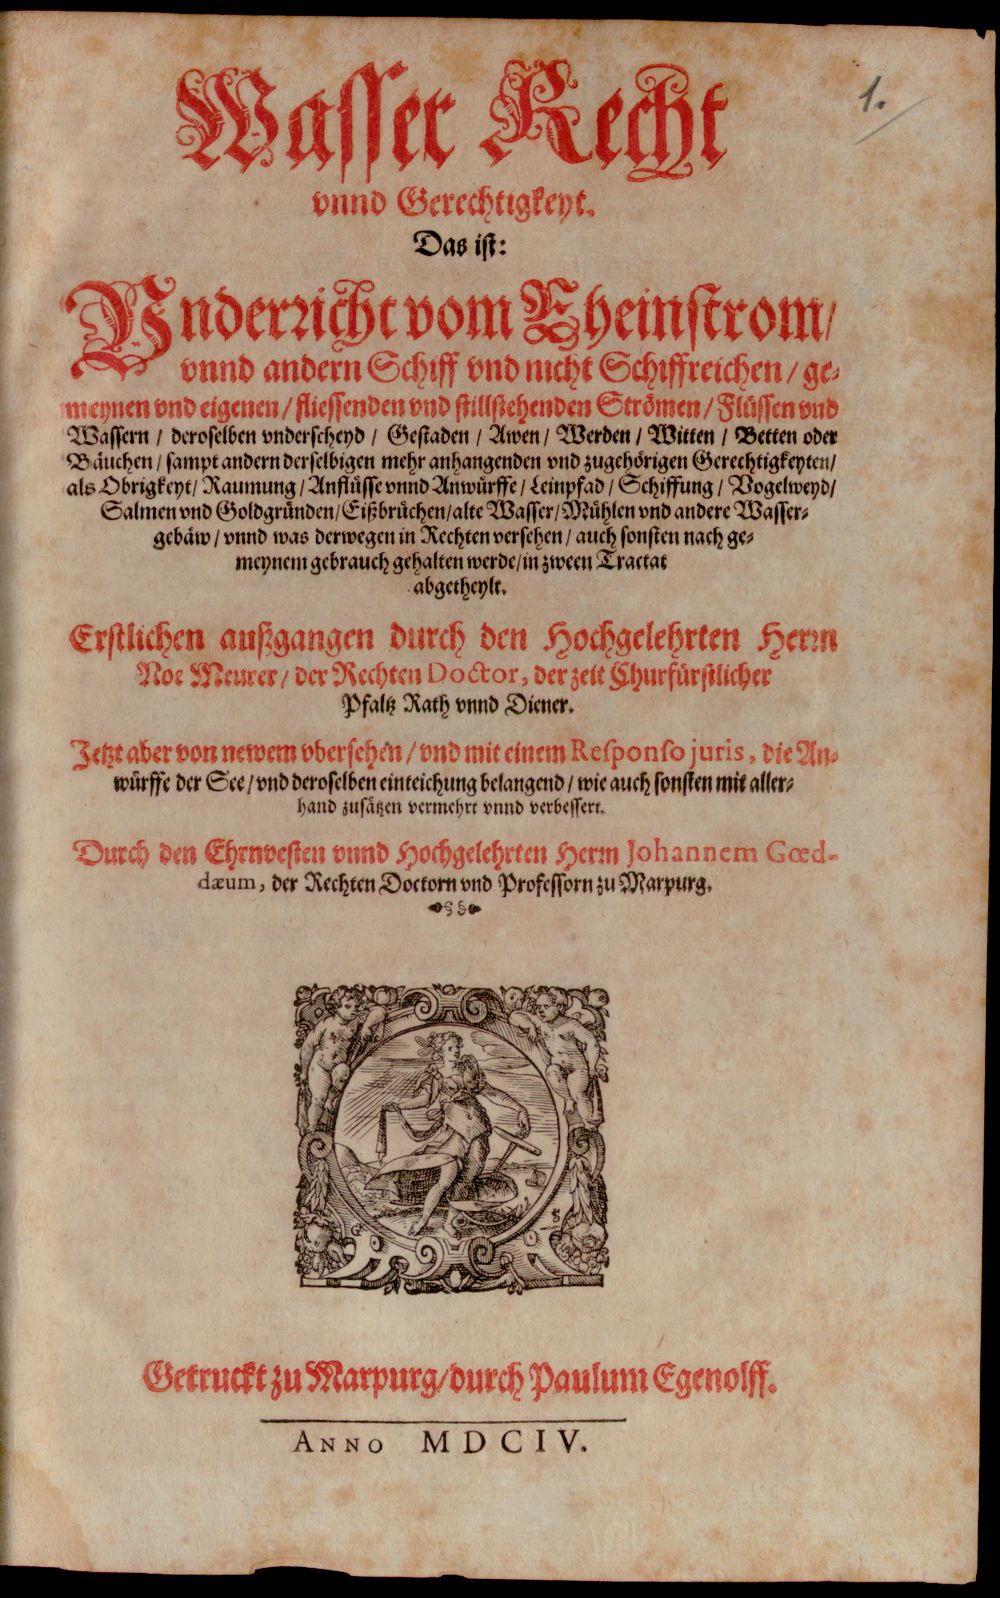 Wasser Recht
1.
vnnd Gerechtigkeyt.
Das ist:
Vnderricht vom Rheinstrom/
vnnd andern Schiff vnd nicht Schiffreichen/ ge-
meynen vnd eigenen/ fliessenden vnd stillstehenden Strömen/ Flüssen vnd
Wassern/ deroselben vnderscheyd/ Gestaden/ Awen/ Werden/ Witten/ Betten oder
Bäuchen/ sampt andern derselbigen mehr anhangenden vnd zugehörigen Gerechtigkeyten/
als Obrigkeyt/ Raumung/ Anflüsse vnnd Anwürffe/ Leinpfad/ Schiffung/ Vogelweyd/
Salmen vnd Goldgründen/ Eißbrüchen/ alte Wasser/ Mühlen vnd andere Wasser-
gebäw/ vnnd was derwegen in Rechten versehen/ auch sonsten nach ge-
meynem gebrauch gehalten werde/ in zween Tractat
abgetheylt.
Erstlichen außgangen durch den Hochgelehrten Herrn
Noe Meurer/ der Rechten Doctor, der zeit Churfürstlicher
Pfaltz Rath vnnd Diener.
Jetzt aber von newem vbersehen/ vnd mit einem Responso juris, die An-
würffe der See/ vnd deroselben einteichung belangend/ wie auch sonsten mit aller-
hand zusätzen vermehrt vnnd verbessert.
Durch den Ehrnvesten vnnd Hochgelehrten Herrn Johannem Gœd-
dæum, der Rechten Doctorn vnd Professorn zu Marpurg.
G S
Getruckt zu Marpurg/ durch Paulum Egenolff.
ANNO MDCIV.